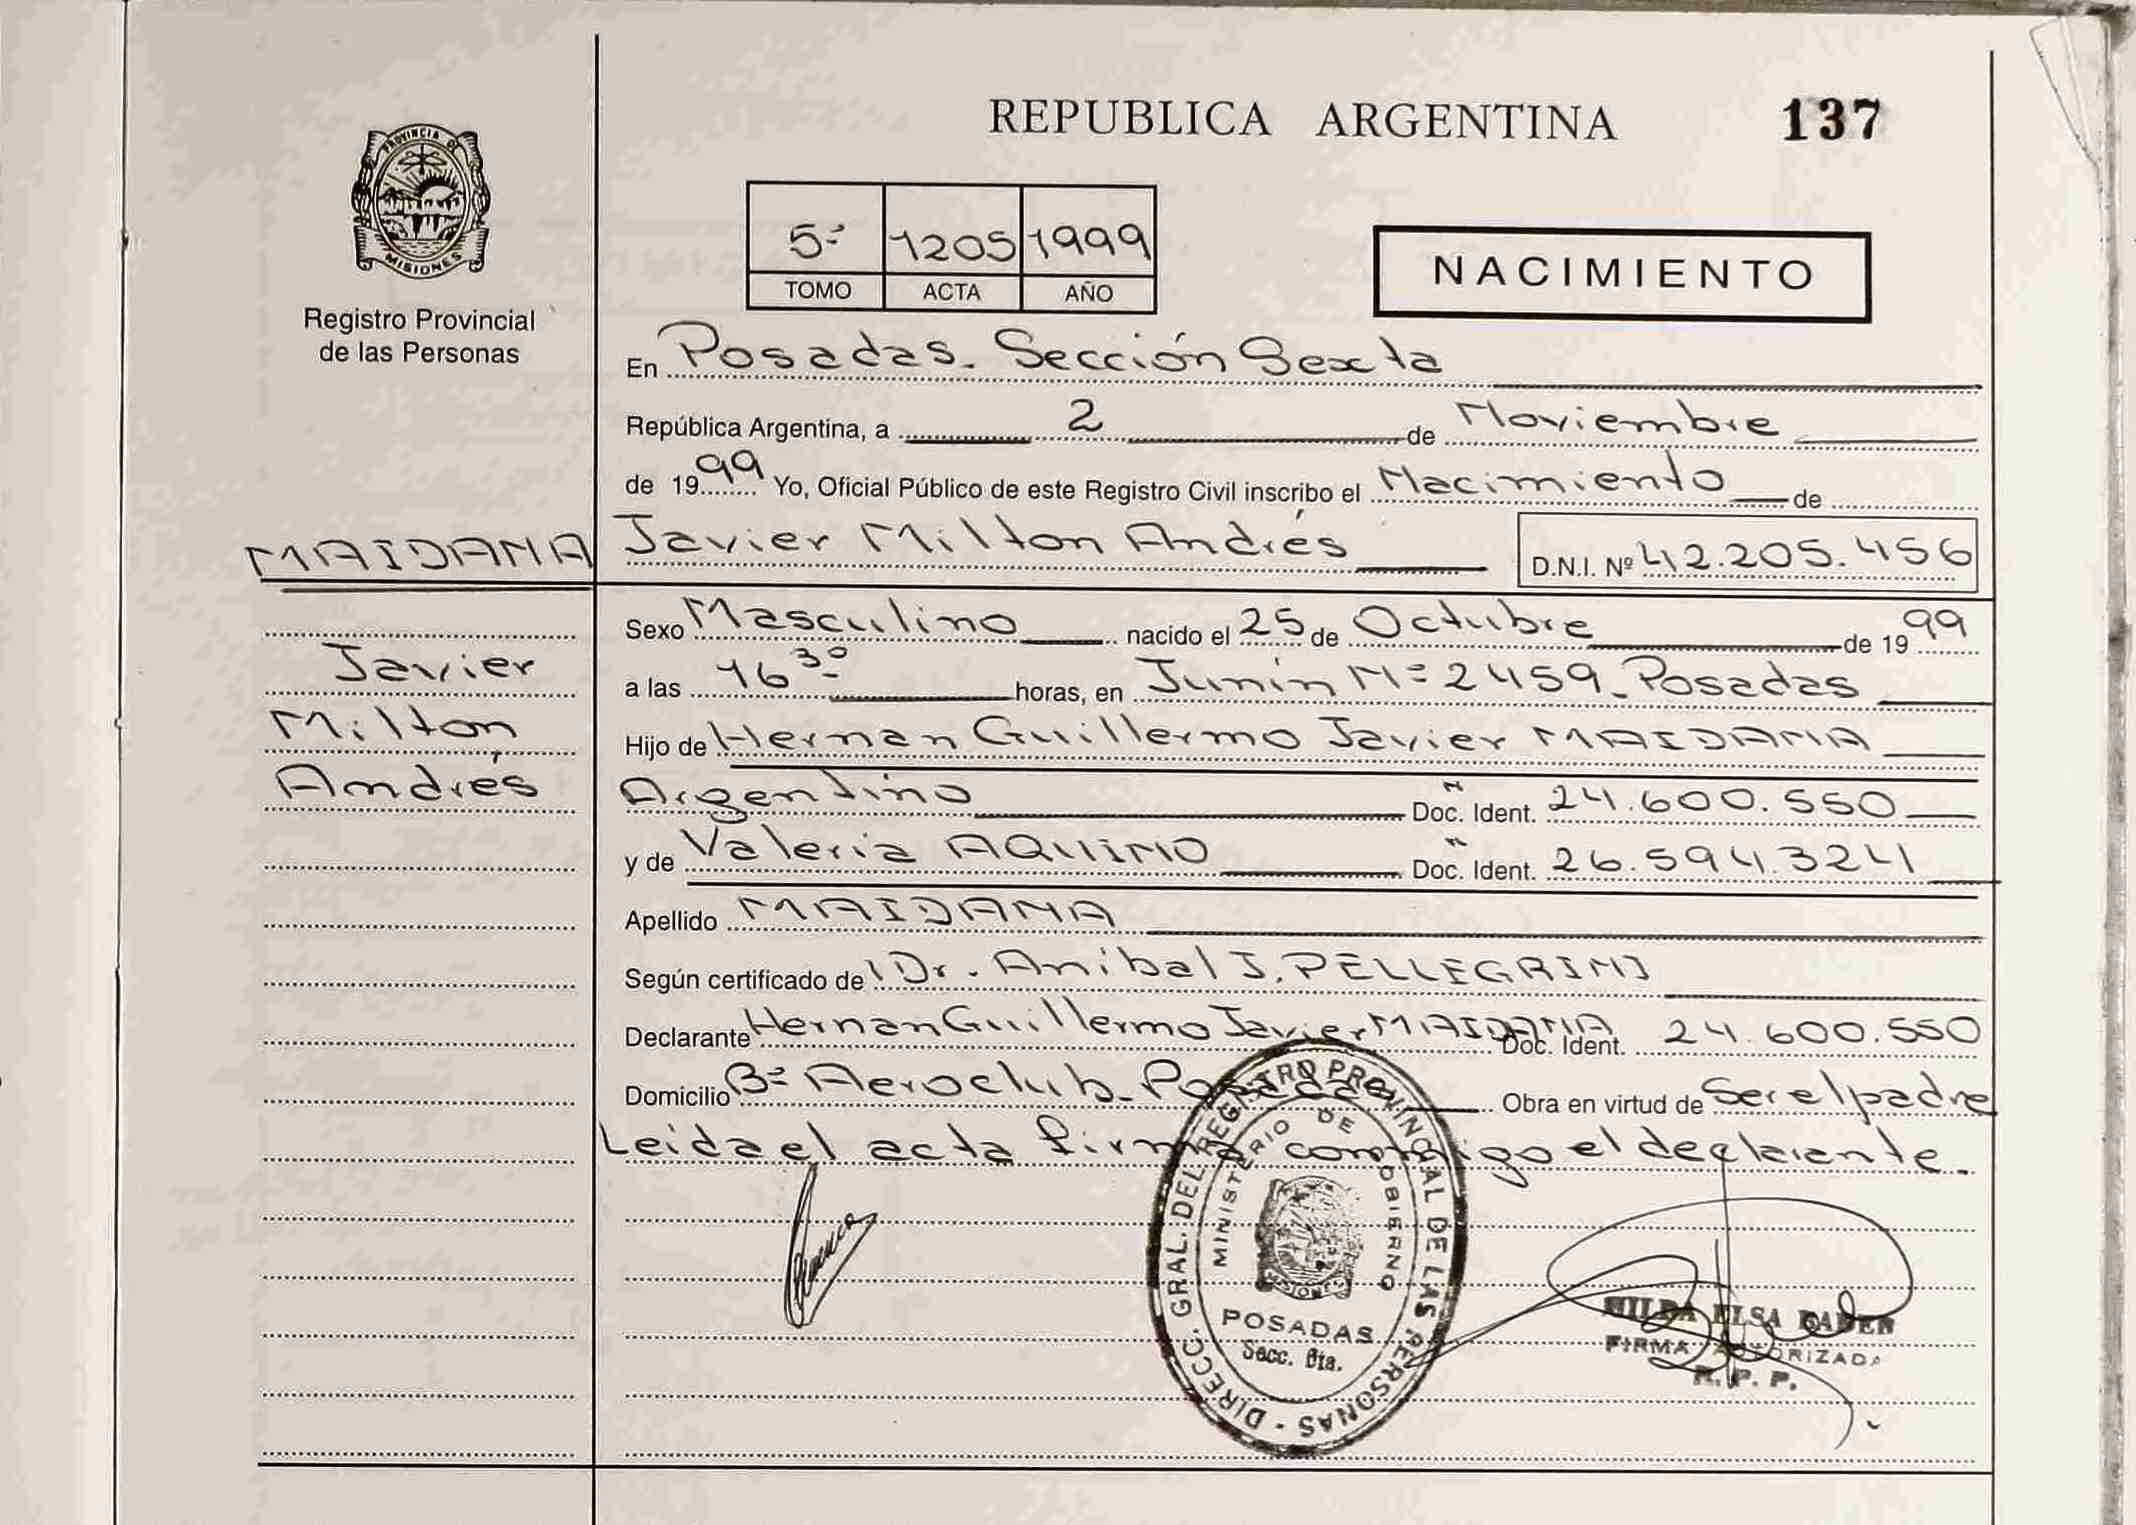 REPUBLICA ARGENTINA 137
PROVINCIA DE
MISIONES
Registro Provincial
de las Personas
5ª 1205 1999
TOMO ACTA AÑO
NACIMIENTO
En Posadas. Sección Sexta
República Argentina, a 2 de Noviembre
de 1999 Yo, Oficial Público de este Registro Civil inscribo el Nacimiento de
MAIDANA Javier Milton Andrés D.N.I. Nº 42.205.456
Sexo Masculino nacido el 25 de Octubre de 1999
Javier
a las 16 30 horas, en Junín Nº 2459. Posadas
Milton
Hijo de Hernan Guillermo Javier MAIDANA
Andrés
Argentino Doc. Ident. 24.600.550
y de Valeria AQUINO Doc. Ident. 26.594.324
Apellido MAIDANA
Según certificado de Dr. Anibal J. PELLEGRINI
Declarante Hernan Guillermo Javier MAIDANA Doc. Ident. 24.600.550
Domicilio Bº Aeroclub. Posadas Obra en virtud de Ser el padre
Leida el acta firma conmigo el declarante.
DIRECC. GRAL. DEL REGISTRO PROVINCIAL DE LAS PERSONAS -
MINISTERIO DE GOBIERNO
MISIONES
POSADAS
Secc. 6ta.
HILDA ELSA
FIRMA AUTORIZADA
R. P. P.